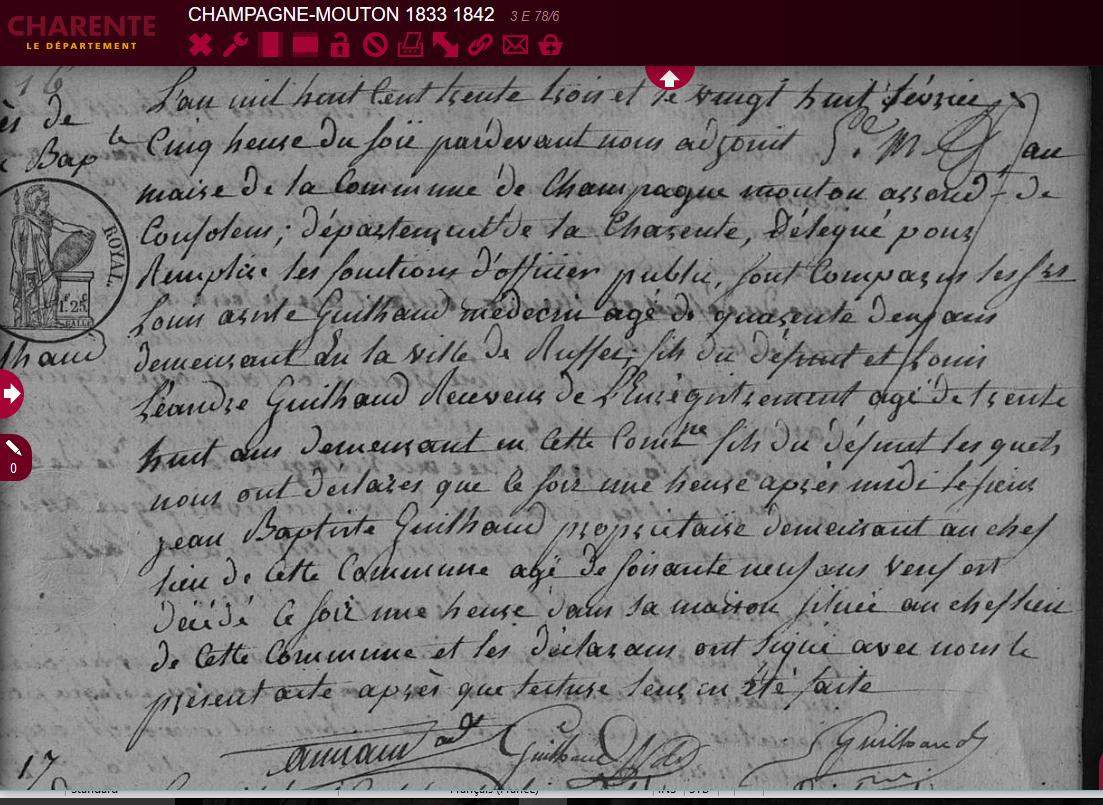 CHARENTE
LE DÉPARTEMENT
CHAMPAGNE-MOUTON 1833 1842 3 E 78/6
16
L'an mil huit cent trente trois et le vingt huit février
ès de
le
Cinq heure du soir pardevant nous adjoint au
Bap
maire de la Commune de Champagne mouton arrond.t de
Confolens; département de la Charente, délégué pour
ROYAL
Remplire les fonctions d'officier public, sont Comparus les Srs
1f. 25c
Louis Guilhaud médecin agé de quarente deux ans
lhaud
demeurant en la ville de Ruffec, fils du défunt et Louis
Léandre Guilhaud Receveur de L'Enrégistrement agé de trente
huit ans demeurant en Cette Comm.ne fils du défunt les quels
0
nous ont déclarés que Ce soir une heure après midi le sieur
jean Baptiste Guilhaud propriétaire demeurant au chef
lieu de Cette Commune agé de soixante neuf ans veuf est
décédé Ce soir une heure dans sa maison située au chef lieu
de Cette Commune et les déclarans ont signé avec nous le
présent acte après que lecture leur en été faite
Guilhaud Guilhaud
17
Standard Français (France) INS STD